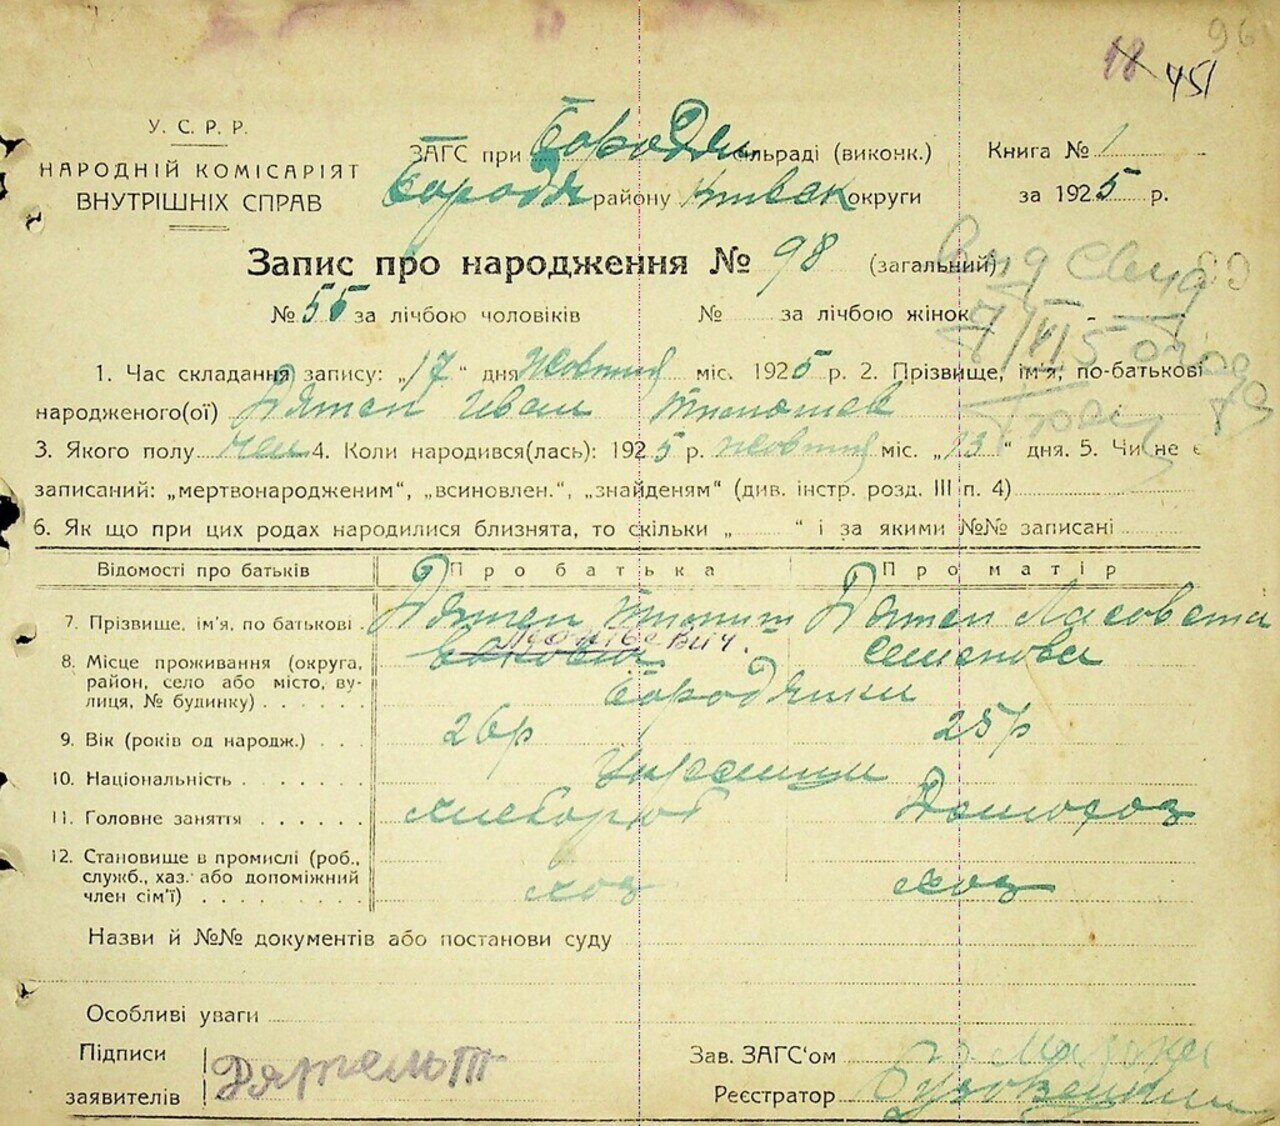 96
18 451
У. С. Р. Р.
НАРОДНІЙ КОМІСАРІЯТ
ВНУТРІШНІХ СПРАВ
ЗАГС при Бородян сільраді (виконк.)
Бородя району Київск округи
Книга № 1
за 1925 р.
Запис про народження № 98 (загальний)
№ 55 за лічбою чоловіків № за лічбою жінок
1. Час складання запису: „17“ дня Жовтня міс. 1925 р. 2. Прізвище, ім'я, по-батькові
народженого(ої) Дятел Иван
3. Якого полу чол 4. Коли народився(лась): 1925 р. жовтня міс. „13“ дня. 5. Чи не є
записаний: „мертвонародженим“, „всиновлен.“, „знайденям“ (див. інстр. розд. III п. 4)
6. Як що при цих родах народилися близнята, то скільки „ “ і за якими №№ записані
Відомості про батьків Про батька Про матір
7. Прізвище, ім'я, по батькові . Дятел Дятел Лисовета
Семенова
8. Місце проживання (округа,
район, село або місто, ву-
лиця, № будинку) . . . . . . Бородянки
9. Вік (років од народж.) . . . 26р 25р
10. Національність . . . . . . Украинци
11. Головне заняття . . . . . . хлебороб Домохоз
12. Становище в промислі (роб.,
служб., хаз. або допоміжний
член сім'ї) . . . . . . . . . хоз хоз
Назви й №№ документів або постанови суду
Особливі уваги
Підписи
заявителів Дятельт
Зав. ЗАГС'ом
Реєстратор